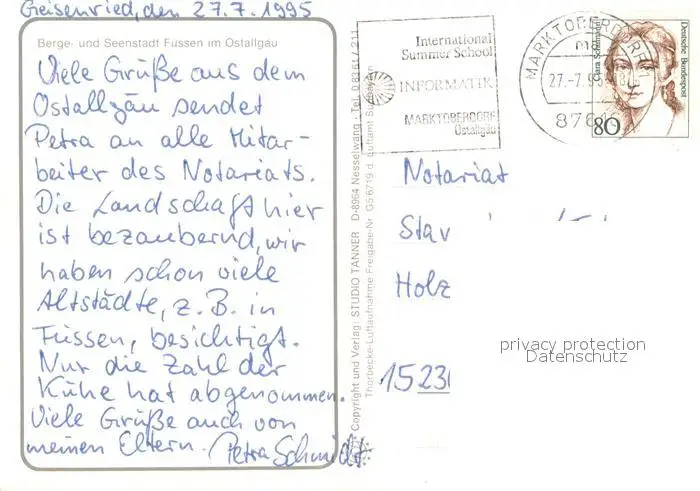 Geisenried, den 27.7.1995
Berge- und Seenstadt Füssen im Ostallgäu
Viele Grüße aus dem
Ostallgäu sendet
Petra an alle Mitar-
beiter des Notariats.
Die Landschaft hier
ist bezaubernd, wir
haben schon viele
Altstädte, z.B. in
Füssen, besichtigt.
Nur die Zahl der
Kühe hat abgenommen.
Viele Grüße auch von
meinen Eltern. Petra Schmidt
Copyright und Verlag: STUDIO TANNER D-8964 Nesselwang · Tel. 0 83 61 / 211
Thorbecke-Luftaufnahme Freigabe-Nr. G5/6719 d. Luftamt Südbayern
International
Summer School
INFORMATIK
MARKTOBERDORF
Ostallgäu
MARKTOBERDORF 1
ma
27.-7.95
Clara Schumann
Deutsche Bundespost
80
Notariat
Stav
Holz
1523
privacy protection
Datenschutz